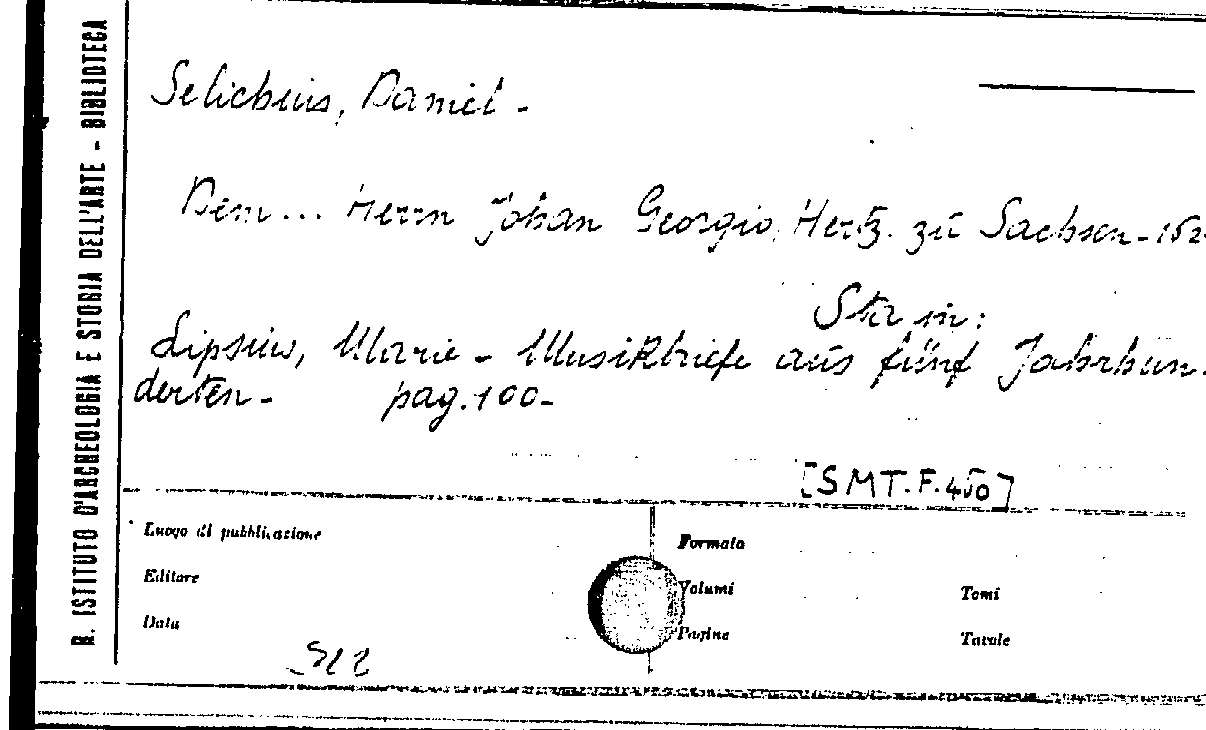 R. ISTITUTO D'ARCHEOLOGIA E STORIA DELL'ARTE - BIBLIOTECA
Selichius, Daniel -
Dem ... Herrn Johan Georgio, Hertz. zu Sachsen - 162
Sta in:
Lipsius, Marie - Musikbriefe aus fünf Jahrhun.
derten - pag. 100 -
[SMT.F.450]
Luogo di pubblicazione
Formato
Editore
Volumi Tomi
Data
Pagine Tavole